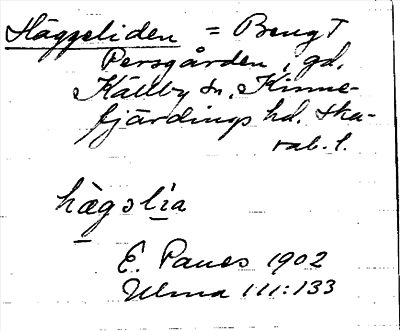 Häggeliden = Bengt
Persgården, gd,
Källby sn, Kinne-
fjärdings hd. Ska-
rab. l.
hægslia
E. Paues 1902
Ulma 111:133